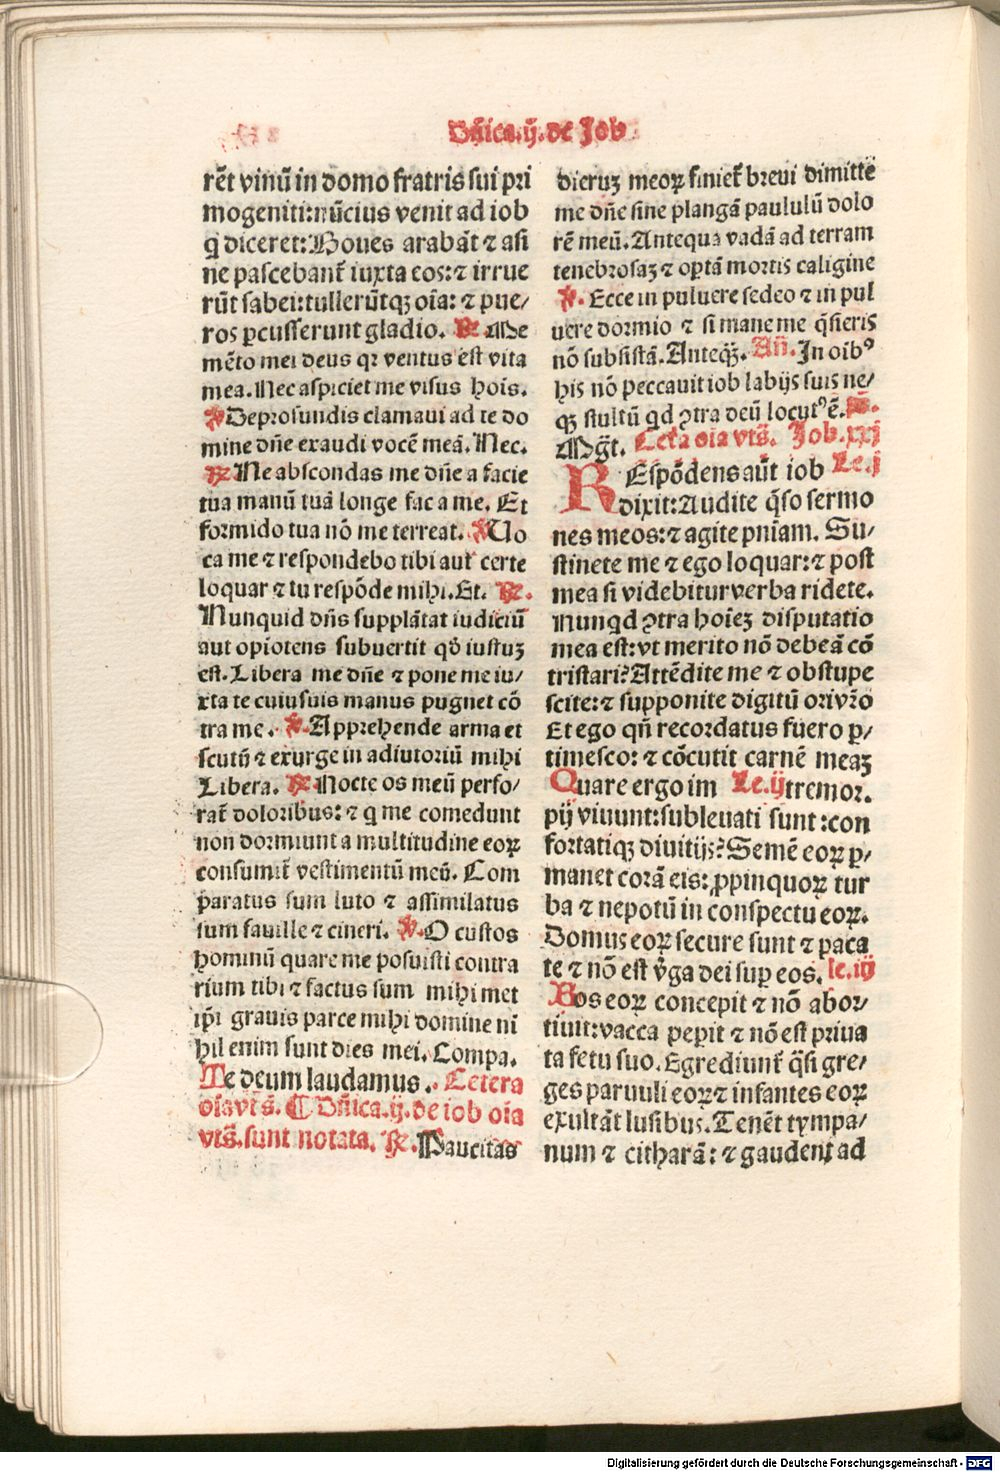 Dñica.ij.de Job
rēt vinū in domo fratris sui pri
mogeniti: nūcius venit ad iob
q̄ diceret: Boues arabāt ⁊ asi
ne pascebant̄ iuxta eos: ⁊ irrue
rūt sabei: tullerūtqꝫ oīa: ⁊ pue/
ros ꝑcusserunt gladio. ℟ Me
mēto mei deus qꝛ ventus est vita
mea. Nec aspiciet me visus hoīs.
℣ De profundis clamaui ad te do
mine dñe exaudi vocē meā. Nec.
℟ Ne abscondas me dñe a facie
tua manū tuā longe fac a me. Et
formido tua nō me terreat. ℣ Uo
ca me ⁊ respondebo tibi aut̄ certe
loquar ⁊ tu respōde mihi. Et. ℟.
Nunquid dñs supplātat iudiciū
aut opīotens subuertit qđ iustuꝫ
est. Libera me dñe ⁊ pone me iu/
xta te cuiusuis manus pugnet cō
tra me. ℣. Apprehende arma et
scutū ⁊ exurge in adiutoriū mihi
Libera. ℟. Nocte os meū perfo/
rat̄ doloribus: ⁊ q̄ me comedunt
non dormiunt a multitudine eoꝝ
consumit̄ vestimentū meū. Com
paratus sum luto ⁊ assimilatus
sum fauille ⁊ cineri. ℣. O custos
hominū quare me posuisti contra
rium tibi ⁊ factus sum mihimet
ip̄i grauis parce mihi domine ni
hil enim sunt dies mei. Compa.
Te deum laudamus. Cetera
oīa vt s̄. ¶ Dñica.ij.de iob oīa
vt s̄. sunt notata. ℟. Paucitas
dieruꝫ meoꝝ finiet̄ breui dimitte
me dñe sine plangā paululū dolo
rē meū. Antequā vadā ad terram
tenebrosaꝫ ⁊ optā mortis caligine
℣. Ecce in puluere sedeo ⁊ in pul
uere dormio ⁊ si mane me q̄sieris
nō subsistā. Anteqꝫ. Añ. In oibꝰ
his nō peccauit iob labijs suis ne/
qꝫ stultū qd ꝯtra deū locutꝰ ē. ℟.
Mḡt. Cetera oīa vt s̄. Job.xxj
REspōdens aūt iob Le.j
dixit: Audite q̄so sermo
nes meos: ⁊ agite pniam. Su/
stinete me ⁊ ego loquar: ⁊ post
mea si videbitur verba ridete.
Nunqd ꝯtra hoīeꝫ disputatio
mea est: vt merito nō debeā cō
tristari? Attēdite me ⁊ obstupe
scite: ⁊ supponite digitū ori vr̄o
Et ego qn̄ recordatus fuero ꝑ/
timesco: ⁊ cōcutit carnē meaꝫ
Quare ergo im Le.ij tremor.
pij viuunt: subleuati sunt: con
fortatiqꝫ diuitijs? Semē eoꝝ ꝑ/
manet corā eis: ꝓpinquoꝝ tur
ba ⁊ nepotū in conspectu eoꝝ.
Domus eoꝝ secure sunt ⁊ paca
te ⁊ nō est v̓ga dei suꝑ eos. le.iij
Bos eoꝝ concepit ⁊ nō abor/
tiuit: vacca peꝑit ⁊ nō est priua
ta fetu suo. Egrediunt̄ q̄si gre/
ges paruuli eoꝝ ⁊ infantes eoꝝ
exultāt lusibus. Tenēt tympa/
num ⁊ citharā: ⁊ gaudent ad
Digitalisierung gefördert durch die Deutsche Forschungsgemeinschaft - DFG